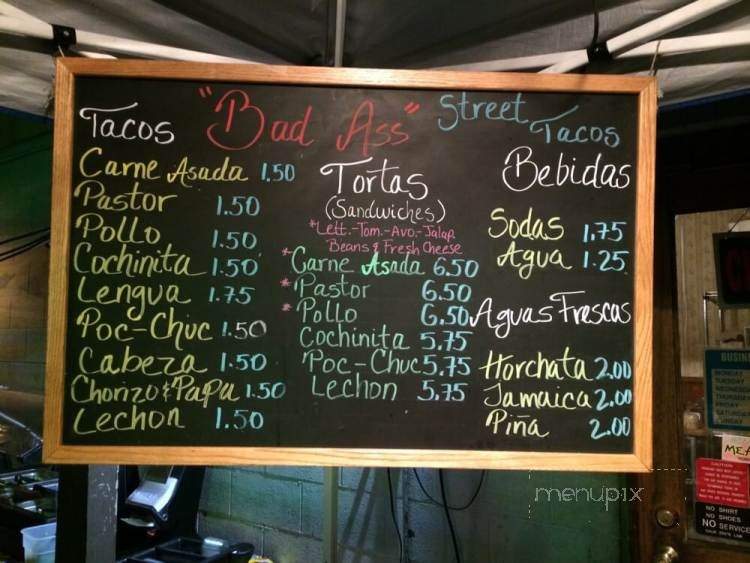 "Bad Ass" Street Tacos
Tacos
Carne Asada 1.50
Pastor 1.50
Pollo 1.50
Cochinita 1.50
Lengua 1.75
Poc-Chuc 1.50
Cabeza 1.50
Chorizo & Papa 1.50
Lechon 1.50
Tortas
(Sandwiches)
*Lett.-Tom.-Avo.-Jalap.
Beans & Fresh Cheese
*Carne Asada 6.50
*Pastor 6.50
*Pollo 6.50
Cochinita 5.75
Poc-Chuc 5.75
Lechon 5.75
Bebidas
Sodas 1.75
Agua 1.25
Aguas Frescas
Horchata 2.00
Jamaica 2.00
Piña 2.00
menupix
BUSIN
MONDAY
TUESDAY
WEDNES
THURSDA
FRIDAY
SATURDA
SUNDAY
MEA
CAUTION
NO SHIRT
NO SHOES
NO SERVICE